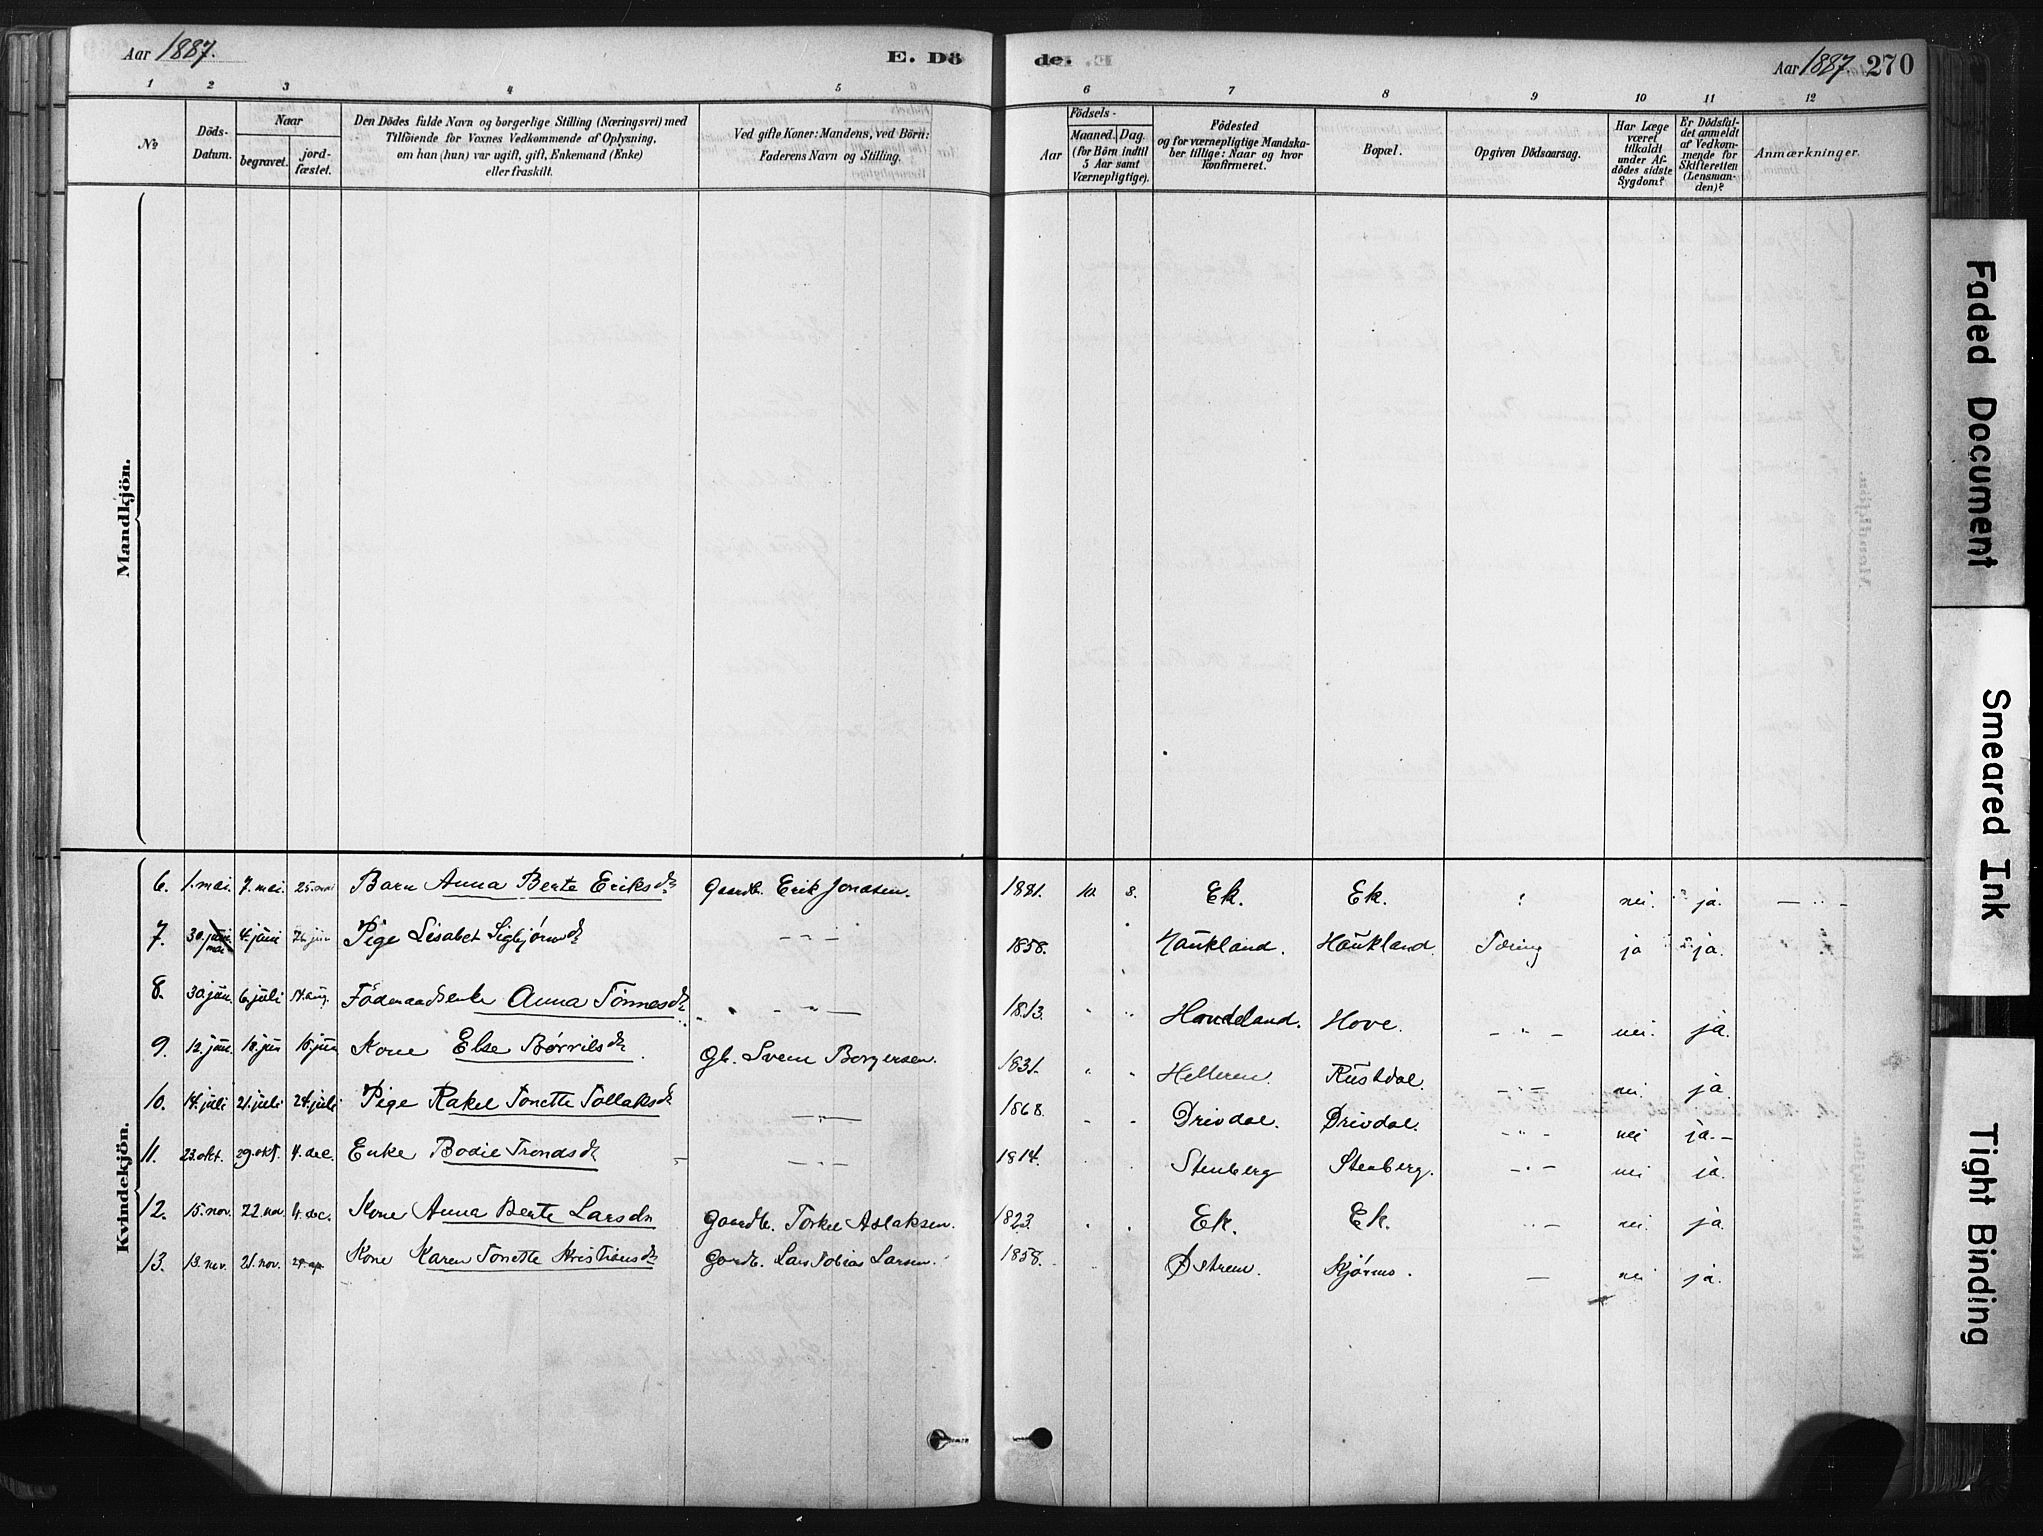 Aar 1887.
E. Dö
de.
Aar 1887. 270
1 2 3 4 5 6 7 8 9 10 11 12
№
Döds-
Datum.
Naar
begravet.
jord-
fæstet.
Den Dödes fulde Navn og borgerlige Stilling (Næringsvei) med
Tilföiende for Voxnes Vedkommende af Oplysning,
om han (hun) var ugift, gift, Enkemand (Enke)
eller fraskilt.
Ved gifte Koner: Mandens, ved Börn:
Faderens Navn og Stilling.
Födsels-
Aar
Maaned.
Dag.
(for Börn indtil
5 Aar samt
Værnepligtige).
Födested
og for værnepligtige Mandska-
ber tillige: Naar og hvor
konfirmeret.
Bopæl.
Opgiven Dödsaarsag.
Har Læge
været
tilkaldt
under Af-
dödes sidste
Sygdom?
Er Dödsfal-
det anmeldt
af Vedkom-
mende for
Skifteretten
(Lensman-
den)?
Anmærkninger.
Mandkjön.
Kvindekjön.
6. 1. mai. 7. mai. 25. mai Barn Anna Berte Eriksdr Gaardb. Erik Jonasen. 1881. 10. 8. Ek. Ek. ? nei. ja. — " —
7. 30. juni. mai 4. juni 26. jun Pige Lisabet Sigbjørnsdr — " — 1858. Haukland. Haukland. Tæring ja ja.
8. 30. jun. 6. juli 14. aug. Fødermaadsenke Anna Tønnesdr " — " — 1813. " " Handeland. Hove. — " — nei. ja.
9. 12. jun. 18. jun 16. jun Kone Else Børrilsdr. Gb. Svein Borgersen. 1831. " " Helleren. Rusdal. — " — nei ja
10. 14. juli 21. juli 24. juli Pige Rakel Tonette Tollaksdr — " — 1868. " " Drivdal. Drivdal. — " — nei ja. —
11. 23. okt. 29. okt. 4. dec. Enke Bodil Trondsdr — " — 1814. Stenberg Stenberg. — " — nei ja.
12. 15. nov. 22. nov. 4. dec. Kone Anna Berte Larsdr Gaardb. Torkel Aslaksen. 1823. " " Ek. Ek. " — nei. ja
13. 13. nov. 21. nov. Kone Karen Tonette Kristiansdr Gaardb. Lars Tobias Larsen. 1858. Østrem. — nei ja.
Faded Document
Smeared Ink
Tight Binding